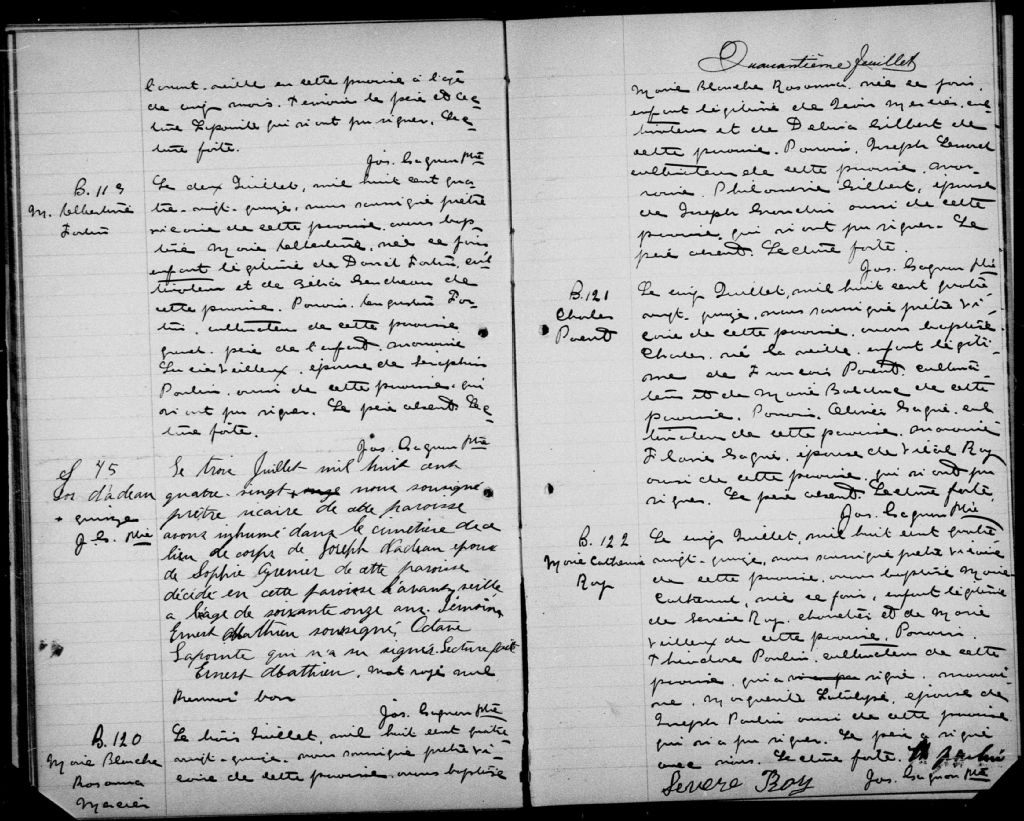 l'avant-veille en cette paroisse à l'age
de cinq mois. Témoin le père et
Lapointe qui n'ont pu signer. Lec-
ture faite.
Jos. Gagnon Ptre
B. 119
M. Albertine
Fortin
Le deux Juillet, mil huit cent qua-
tre-vingt-quinze, nous soussigné prêtre
vicaire de cette paroisse avons bap-
tisé Marie Albertine, née ce jour
enfant légitime de David Fortin, cul-
tivateur et de Célia Gendreau de
cette paroisse. Parrain, Augustin For-
tin, cultivateur de cette paroisse
grand-père de l'enfant, marraine
Lucie Veilleux, épouse de Séraphin
Poulin, aussi de cette paroisse, qui
n'ont pu signer. Le père absent. Lec-
ture faite.
Jos. Gagnon Ptre
S 45
Jos. Nadeau
+ quinze
J. G. Ptre
Le trois Juillet mil huit cent
quatre-vingt + onze nous soussigné
prêtre vicaire de cette paroisse
avons inhumé dans le cimetière de ce
lieu le corps de Joseph Nadeau époux
de Sophie Grenier de cette paroisse
décédé en cette paroisse l'avant veille
a l'âge de soixante onze ans. Témoins
Ernest Mathieu soussigné, Octave
Lapointe qui n'a su signer. Lecture faite
Ernest Mathieu. Mot rayé nul
Renvoi bon
Jos. Gagnon Ptre
B. 120
Marie Blanche
Rosanna
Mercier
Le trois Juillet, mil huit cent quatre-
vingt-quinze, nous soussigné prêtre vi-
caire de cette paroisse, avons baptisé
Quarantième feuillet
Marie Blanche Rosanna, née ce jour,
enfant légitime de Mercier, cul-
tivateur et de Delvia Gilbert de
cette paroisse. Parrain, Joseph
cultivateur de cette paroisse, mar-
raine Philomène Gilbert, épouse
de Joseph Grondin aussi de cette
paroisse, qui n'ont pu signer. Le
père absent. Lecture faite.
Jos. Gagnon Ptre
B. 121
Charles
Poulin
Le cinq Juillet, mil huit cent quatre
vingt-quinze, nous soussigné prêtre vi-
caire de cette paroisse, avons baptisé
Charles, né la veille, enfant légiti-
me de François cultiva-
teur et de Marie Bolduc de cette
paroisse. Parrain, Olivier Gagné, cul-
tivateur de cette paroisse, marraine
Flavie Gagné, épouse de Vital Roy
aussi de cette paroisse, qui n'ont pu
signer. Le père absent. Lecture faite.
Jos. Gagnon Ptre
B. 122
Marie Catherine
Roy
Le cinq Juillet, mil huit cent quatre
vingt-quinze, nous soussigné prêtre vicaire
de cette paroisse, avons baptisé Marie
Catherine, née ce jour, enfant légitime
de Sévère Roy, charretier et de Marie
Veilleux de cette paroisse. Parrain
Théodore Poulin, cultivateur de cette
paroisse, qui a signé, marrai-
ne, Marguerite Latulippe, épouse de
Joseph Poulin aussi de cette paroisse
qui n'a pu signer. Le père a signé
avec nous. Lecture faite.
Severe Roy
Jos. Gagnon Ptre